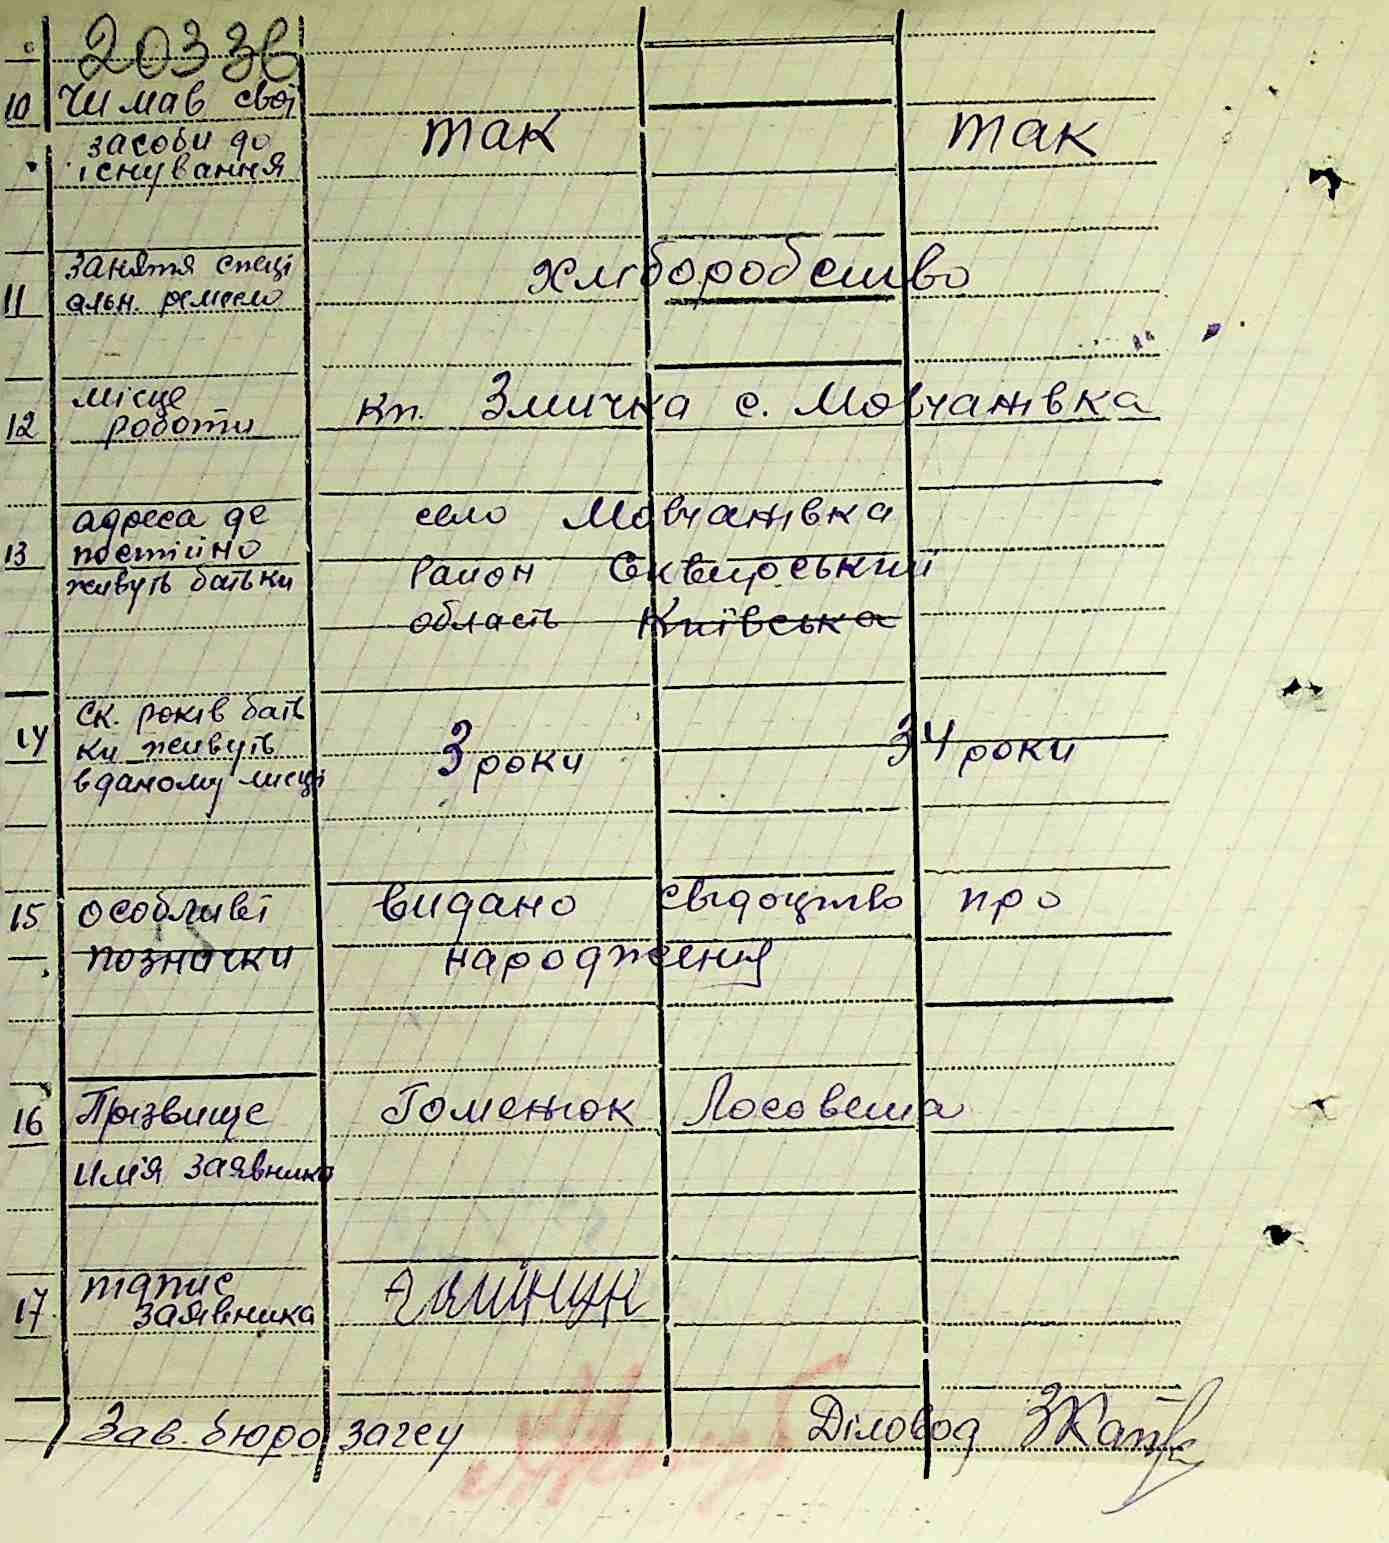 20336
10 Чи мав свої
засоби до
існування так так
11 заняття спеці
альн. ремесло хліборобство
12 місце
роботи кп. Змичка с. Мовчанівка
13 адреса де
постійно
живуть батьки
село Мовчанівка
Район Сквирський
область Київська
14 Ск. років бать
ки живуть
в даному місці 3 роки 34 роки
15 особливі
позначки
видано свідоцтво про
народження
16 Прізвище
имя заявника Гоменюк
17 підпис
заявника
Зав. бюро загсу Діловод